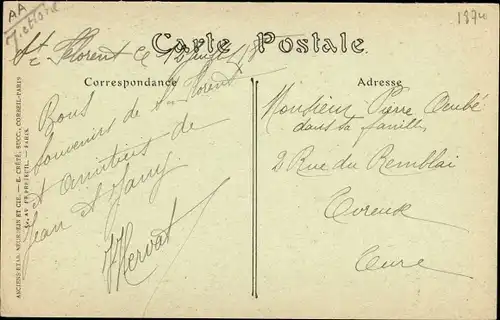 AA
1874
Carte Postale
St Florent le 15 juillet 18
Correspondance
Adresse
Bons
souvenirs de St Florent
et amitiés de
Jean et Jany
Hervat
Monsieur Pierre
dans sa famille
2 Rue du Remblai
Evreux
Eure
ANCIENS ETAB. NEURDEIN ET CIE. — E. CRÉTÉ, SUCC. CORBEIL-PARIS